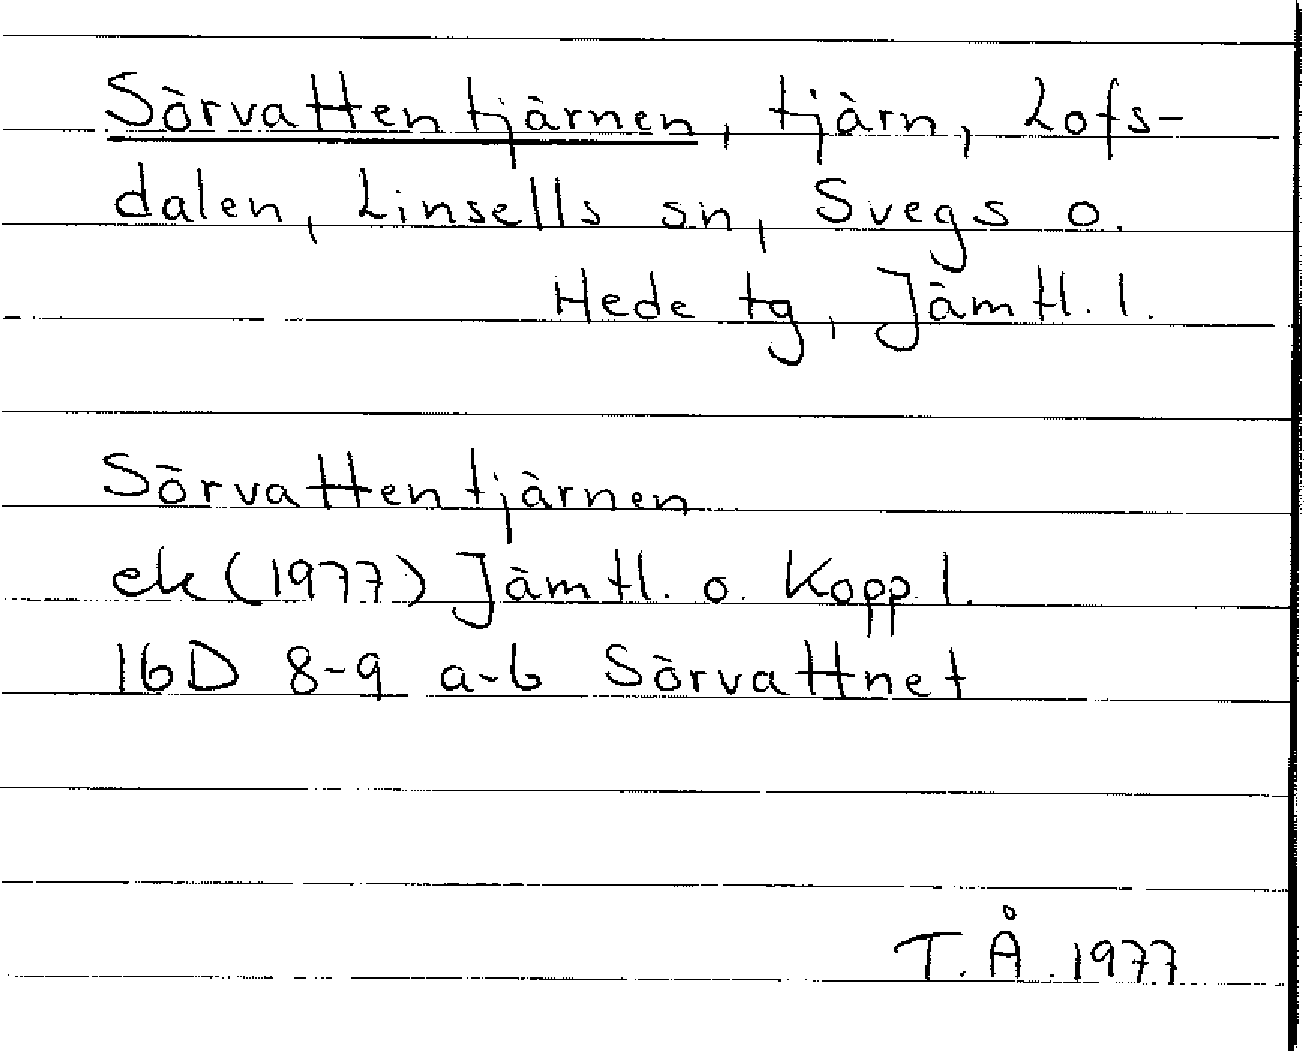 Sörvattentjärnen, tjärn, Lofs-
dalen, Linsells sn, Svegs o.
Hede tg, Jämtl. l.
Sörvattentjärnen
ek (1977) Jämtl. o. Kopp. l.
16D 8-9 a-b Sörvattnet
T. Å. 1977